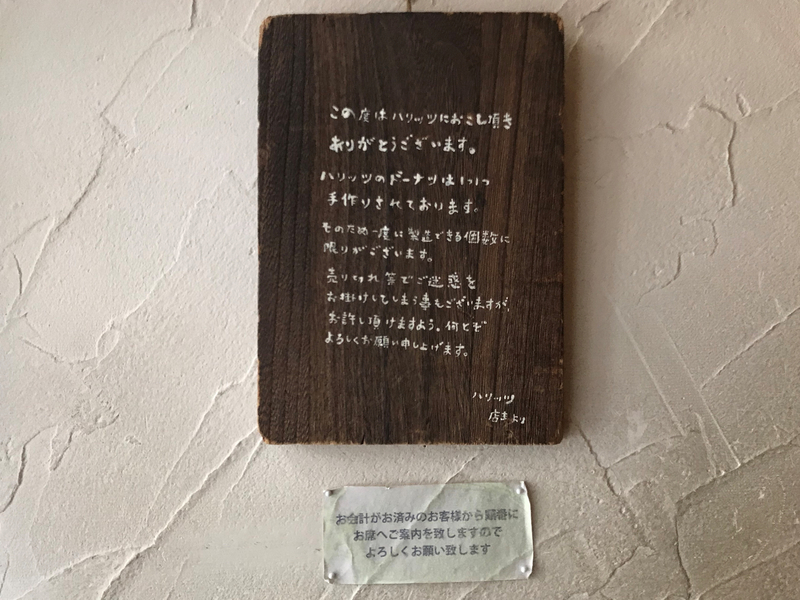 この度はハリッツにおこし頂き
ありがとうございます。
ハリッツのドーナツは1つ1つ
手作りされております。
そのため一度に製造できる個数に
限りがございます。
売り切れ等でご迷惑を
お掛けしてしまう事もございますが、
お許し頂けますよう。何とぞ
よろしくお願い申し上げます。
ハリッツ
店主より
お会計がお済みのお客様から順番に
お席へご案内を致しますので
よろしくお願い致します